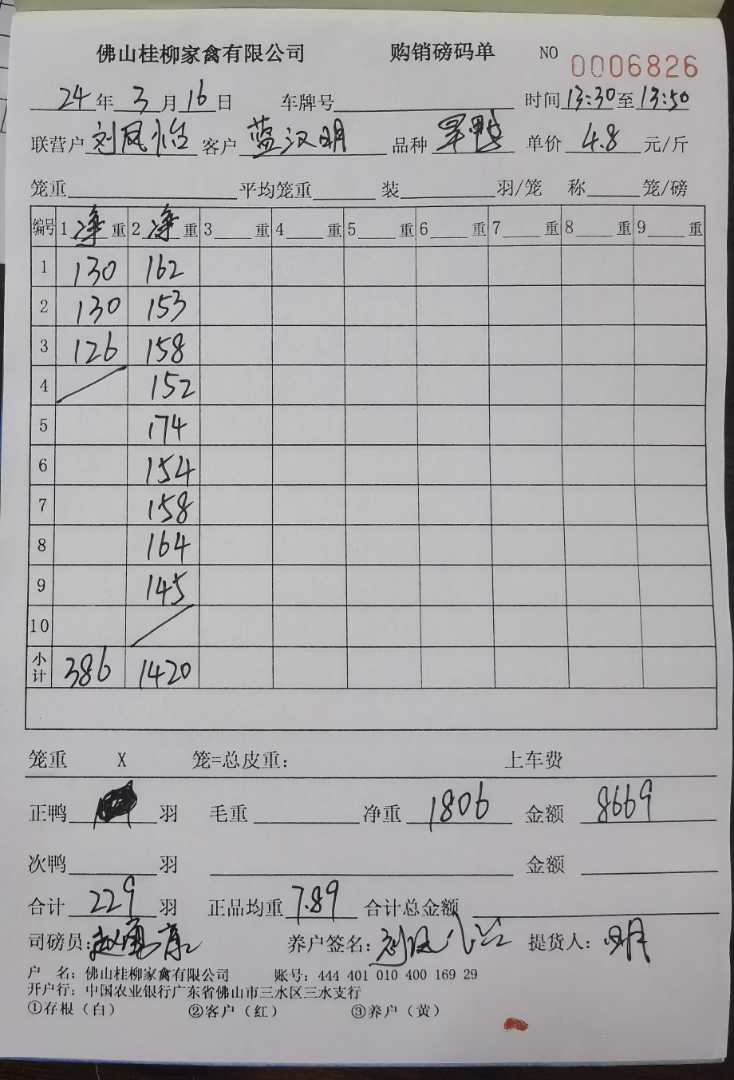 佛山桂柳家禽有限公司 购销磅码单 NO 0006826
24年3月16日 车牌号 时间13:30至13:50
联营户 刘凤怡 客户 蓝汉明 品种 旱鸭 单价 4.8 元/斤
笼重 平均笼重 装 羽/笼 称 笼/磅
编号 1 净 重 2 净 重 3 重 4 重 5 重 6 重 7 重 8 重 9 重
1 130 162
2 130 153
3 126 158
4 152
5 174
6 154
7 158
8 164
9 145
10
小计 386 1420
笼重 X 笼=总皮重: 上车费
正鸭 羽 毛重 净重 1806 金额 8669
次鸭 羽 金额
合计 229 羽 正品均重 7.89 合计总金额
司磅员: 养户签名: 刘 提货人: 明
户 名: 佛山桂柳家禽有限公司 账号: 444 401 010 400 169 29
开户行: 中国农业银行广东省佛山市三水区三水支行
①存根（白） ②客户（红） ③养户（黄）